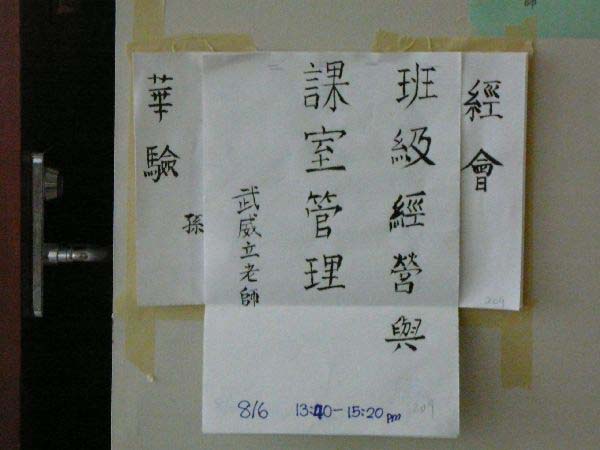 經
會
209
班級經營與
課室管理
武威立老師
8/6 13:40-15:20 pm
209
華
驗
孫
師